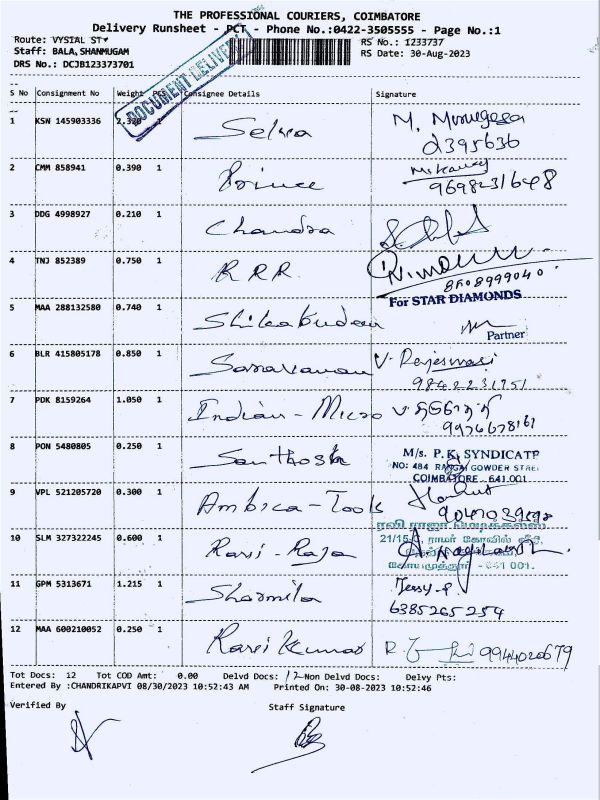 THE PROFESSIONAL COURIERS, COIMBATORE
Delivery Runsheet - PCT - Phone No.:0422-3505555 - Page No.:1
Route: VYSIAL ST
Staff: BALA,SHANMUGAM
DRS No.: DCJB123373701
RS No.: 1233737
RS Date: 30-Aug-2023
DOCUMENT DELIVERY
S No Consignment No Weight PCS Consignee Details Signature
1 KSN 145903336 2.320 1 Selva M. Murugesa
2395636
2 CMM 858941 0.390 1 Prince
9698231648
3 DDG 4998927 0.210 1 Chandra
4 TNJ 852389 0.750 1 R.R.R.
8608999040
For STAR DIAMONDS
5 MAA 288132580 0.740 1
Partner
6 BLR 415805178 0.850 1 Saravanan V. Rajeswari
9842231951
7 PDK 8159264 1.050 1 Indian - Micro
9976678161
8 PON 5480805 0.250 1 Santhosh M/s. P.K. SYNDICATE
NO: 484 RANGAI GOWDER STREE
COIMBATORE - 641 001.
9 VPL 521205720 0.300 1 Ambica - Tools
ரவி ராஜா
10 SLM 327322245 0.600 1 Ravi - Raja 21/15-C, ராமர் கோவில் வீதி,
கோயமுத்தூர் - 641 001.
11 GPM 5313671 1.215 1 Sharmila Jessy.P
6385265254
12 MAA 600210052 0.250 1 Ravi Kumar 9944020679
Tot Docs: 12 Tot COD Amt: 0.00 Delvd Docs: 12 Non Delvd Docs: Delvy Pts:
Entered By :CHANDRIKAPVI 08/30/2023 10:52:43 AM Printed On: 30-08-2023 10:52:46
Verified By Staff Signature